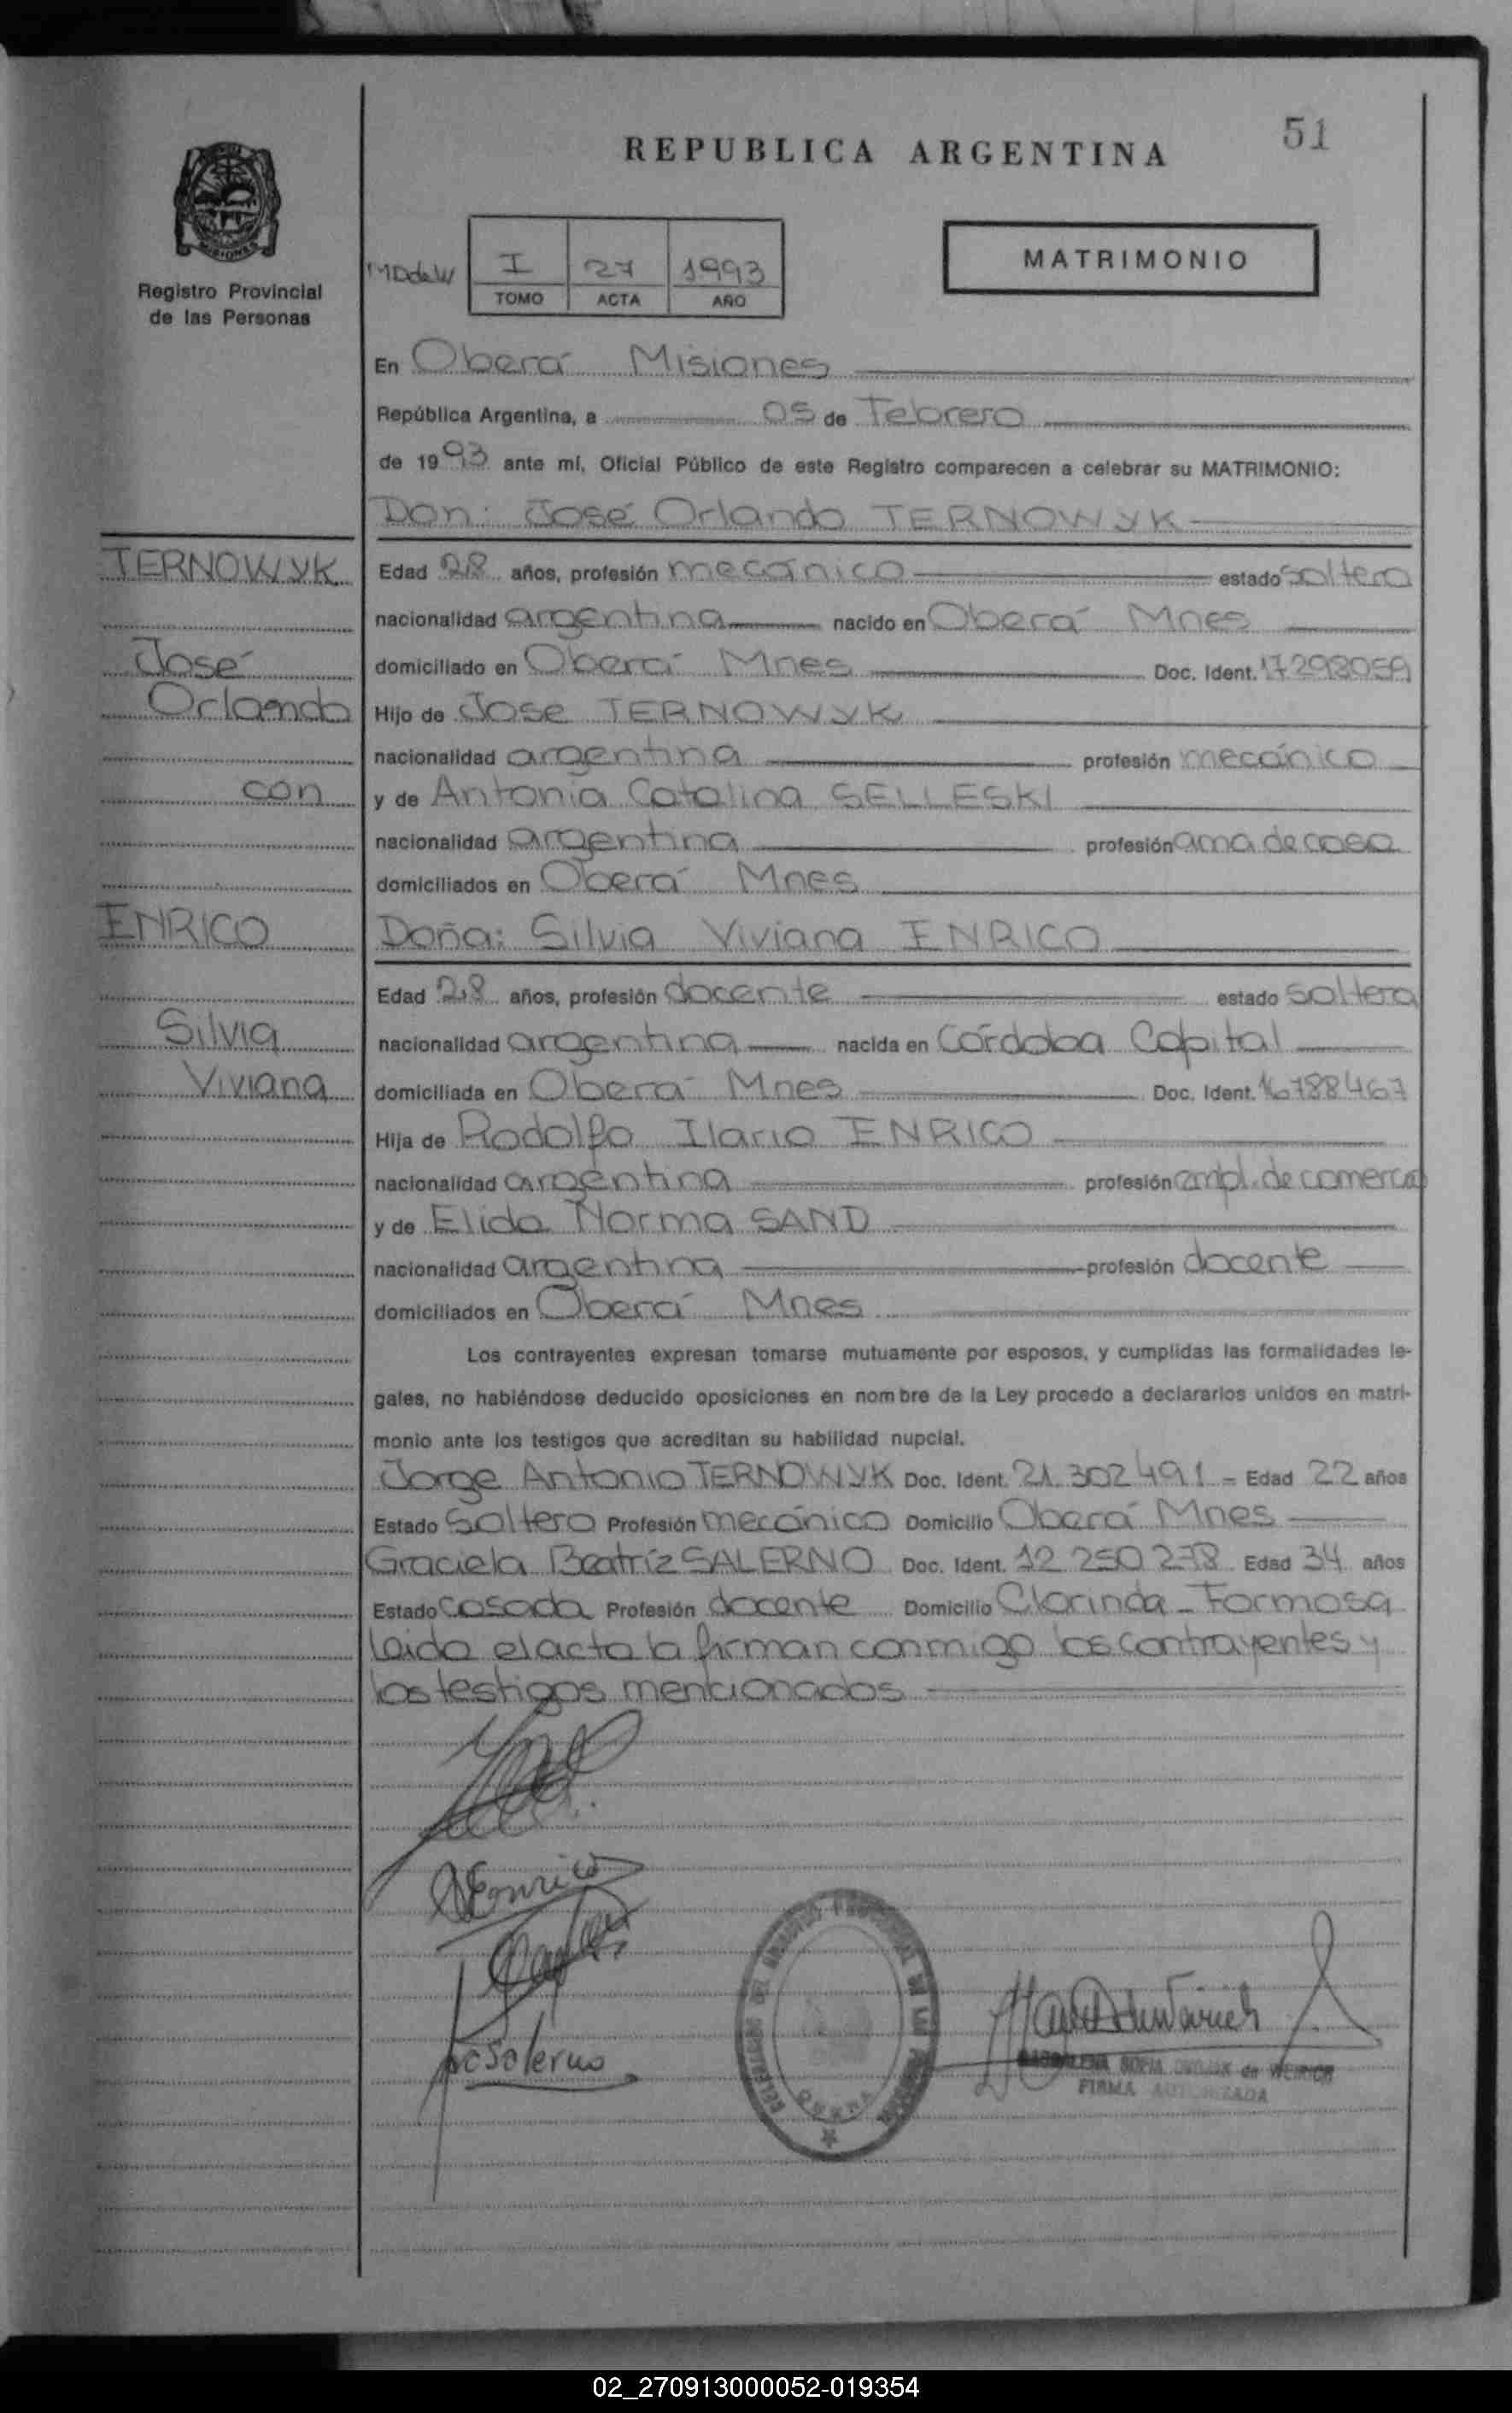 51
REPUBLICA ARGENTINA
MATRIMONIO
I 27 1993
TOMO ACTA AÑO
Registro Provincial
de las Personas
En Oberá Misiones
República Argentina, a 05 de Febrero
de 1993 ante mí, Oficial Público de este Registro comparecen a celebrar su MATRIMONIO:
Don: José Orlando TERNOWYK
TERNOWYK
Edad 28 años, profesión mecánico estado soltero
nacionalidad argentina nacido en Oberá Mnes
José
domiciliado en Oberá Mnes Doc. Ident. 17298059
Orlando
Hijo de José TERNOWYK
nacionalidad argentina profesión mecánico
con
y de Antonia Catalina SELLESKI
nacionalidad argentina profesión ama de casa
domiciliados en Oberá Mnes
ENRICO
Doña: Silvia Viviana ENRICO
Edad 28 años, profesión docente estado soltera
Silvia
nacionalidad argentina nacida en Córdoba Capital
Viviana
domiciliada en Oberá Mnes Doc. Ident. 16788467
Hija de Rodolfo Ilario ENRICO
nacionalidad argentina profesión empl. de comercio
y de Elida Norma SAND
nacionalidad argentina profesión docente
domiciliados en Oberá Mnes
Los contrayentes expresan tomarse mutuamente por esposos, y cumplidas las formalidades le-
gales, no habiéndose deducido oposiciones en nombre de la Ley procedo a declararlos unidos en matri-
monio ante los testigos que acreditan su habilidad nupcial.
Jorge Antonio TERNOWYK Doc. Ident. 21.302491 - Edad 22 años
Estado Soltero Profesión mecánico Domicilio Oberá Mnes
Graciela Beatríz SALERNO Doc. Ident. 12 250 278 Edad 34 años
Estado casada Profesión docente Domicilio Clorinda - Formosa
leido el acta la firman conmigo los contrayentes y
los testigos mencionados
Enrico
Salerno
de WEIRICH
FIRMA AUTORIZADA
02_270913000052-019354